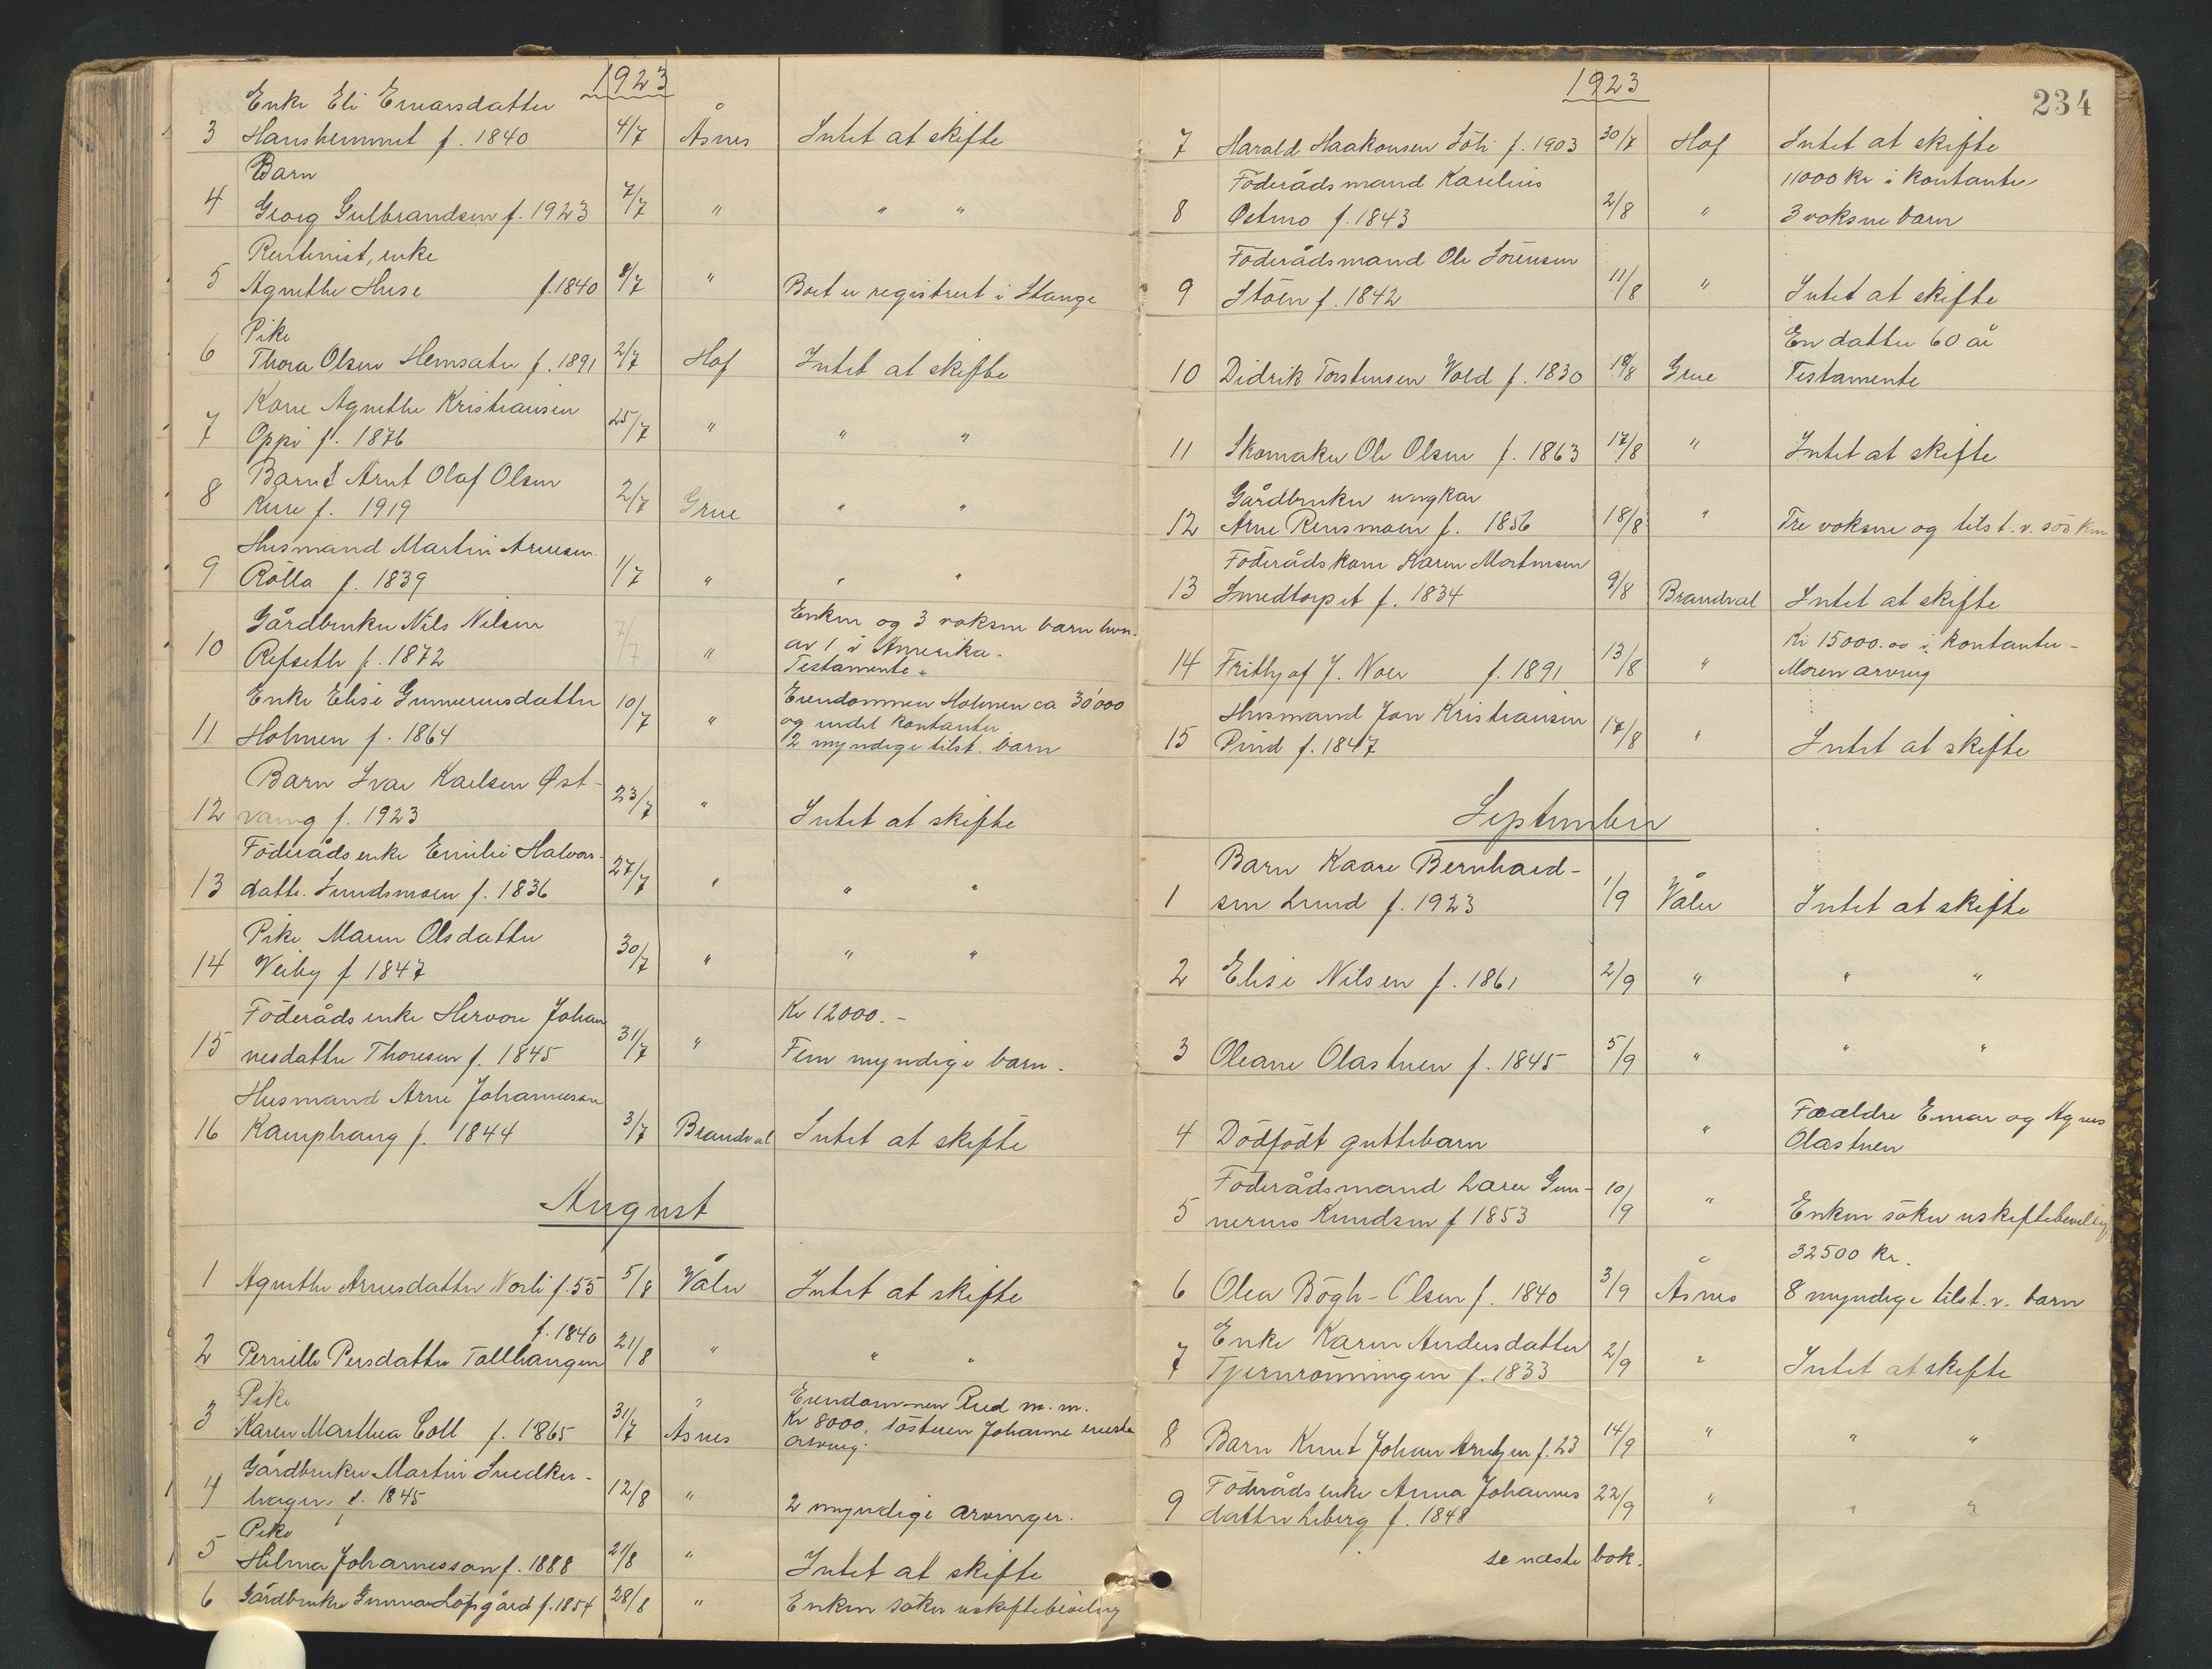 1923
Enke Eli Einarsdatter
3 Hanshemmet f. 1840 4/7 Åsnes Intet at skifte
Barn
4 Georg Gulbrandsen f. 1923 7/7 " " "
Rentenist, enke
5 Agnethe Huse f. 1840 8/7 " Boet er registrert i Stange
Pike
6 Thora Olsen Hemsæter f. 1891 2/7 Hof Intet at skifte
Kone Agnethe Kristiansen
7 Oppi f. 1876 25/7 " " "
Barnet Arnt Olaf Olsen
8 f. 1919 2/7 Grue " "
Husmand Martin Arnesen
9 Rölla f. 1839 1/7 " " "
Gårdbruker Nils Nilsen Enken og 3 voksne barn hvor-
10 Refseth f. 1872 7/7 " av 1 i Amerika.
Testamente.
Enke Elise Gunnerusdatter 10/7 Eiendommen Holmen ca 30'000
11 Holmen f. 1864 " og endel kontanter
2 myndige tilst. barn
Barn Ivar Karlsen Øst-
12 vang f. 1923 23/7 " Intet at skifte
Föderåds enke Emilie Halvors-
13 datter Lundsmoen f. 1836 27/7 " " "
Pike Maren Olsdatter
14 Veiby f 1847 30/7 " " "
Föderåds enke Hervore Johan Kr 12000.-
15 nesdatter Thoresen f. 1845 31/7 " Fem myndige barn.
Husmand Arne Johannesen
16 Kamphaug f. 1844 3/7 Brandval Intet at skifte
August
1 Agnethe Arnesdatter Norli f. 55 5/8 Våler Intet at skifte
f. 1840
2 Pernille Persdatter Tallhaugen 21/8 " " "
Pike Eiendommen Rud m. m.
3 Karen Marthea Coll f. 1865 31/7 Åsnes Kr 8000, söstren Johanne eneste
arving.
Gårdbruker Martin Snedker-
4 hagen f. 1845 12/8 " 2 myndige arvinger.
Pike
5 Hilma Johannesson f. 1888 21/8 " Intet at skifte
6 Gårdbruker Gunnar Löfsgård f. 1854 28/8 " Enken söker uskiftebevilling
1923
234
7 Harald Haakonsen Söli f. 1903 30/7 Hof Intet at skifte
Föderådsmand Karelius 11000 kr i kontanter
8 Østmo f. 1843 2/8 " 3 voksne barn
Föderådsmand Ole Sörensen
9 Stöen f. 1842 11/8 " Intet at skifte
En datter 60 år
10 Didrik Torstensen Vold f. 1830 18/8 Grue Testamente
11 Skomaker Ole Olsen f. 1863 17/8 " Intet at skifte
Gårdbruker ungkar
12 Arne Rensmoen f. 1856 18/8 " Tre voksne og tilst. v. sösken
Föderådskone Karen Mortensen
13 Smedtorpet f. 1834 9/8 Brandval Intet at skifte
Kr 15000.00 i kontanter -
14 Frithjof J. Noer f. 1891 13/8 " Moren arving
Husmand Jon Kristiansen
15 Pind f. 1847 17/8 " Intet at skifte
September
Barn Kaare Bernhard-
1 sen Lund f. 1923 1/9 Våler Intet at skifte
2 Elise Nilsen f. 1861 2/9 " " "
3 Oleane Olastuen f. 1845 5/9 " " "
Forældre Einar og Agnes
4 Dödfödt guttebarn " Olastuen
Föderådsmand Lars Gun-
5 nerius Knudsen f 1853 10/9 " Enken söker uskiftebevilling
32500 kr.
6 Olea Bögh-Olsen f. 1840 3/9 Åsnes 8 myndige tilst. v. barn
Enke Karen Andersdatter
7 Tjernrönningen f. 1833 2/9 " Intet at skifte
8 Barn Knut Johan Arntzen f. 23 14/9 " " "
Föderåds enke Anna Johannes
9 datter Liberg f. 1848 22/9 " " "
se næste bok.